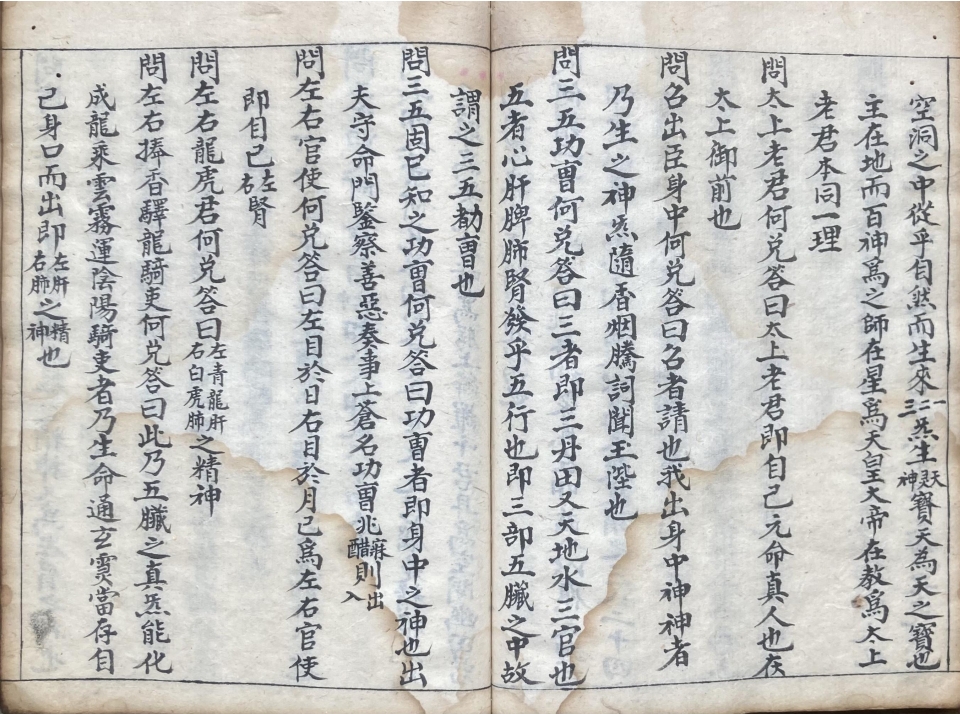 空洞之中從乎自然而生來一二三炁生天靈神寶天為天之寶也
主在地而百神爲之師在星爲天皇大帝在教爲太上
老君本同一理
問太上老君何兊答曰太上老君即自己元命真人也在
太上御前也
問召出臣身中何兊答曰召者請也我出身中神神者
乃生之神炁隨香烟騰詞聞玉陛也
問三五功曺何兊答曰三者即三丹田又天地水三官也
五者心肝脾肺腎發乎五行也即三部五臟之中故
謂之三五功曺也
問三五固已知之功曺何兊答曰功曺者即身中之神也出
夫守命門鍳察善惡奏事上蒼名功曺兆寐醋則出入
問左右官使何兊答曰左目於日右目於月已爲左右官使
即自己左右腎
問左右龍虎君何兊答曰左青龍肝右白虎肺之精神
問左右捧香驛龍騎吏何兊答曰此乃五臟之真炁能化
成龍乘雲霧運陰陽騎吏者乃生命通玄霛當存自
己身口而出即左肝右肺之精神也